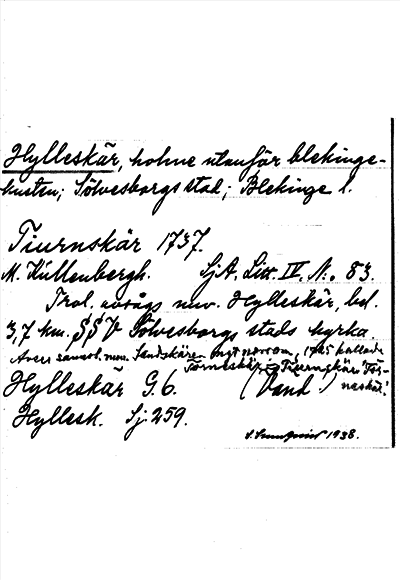 Hylleskär, holme utanför blekinge-
kusten; Sölvesborgs stad; Blekinge l.
Tiurnskär 1737.
M. Kullenbergh. SjA. Litt. IV, N:o 83.
Trol. avsågs nuv. Hylleskär, bel.
3,7 km. SSV Sölvesborgs stads kyrka.
Avses sannol. nuv. Sandskäre ngt norr om, 1785 kallade
Törneskär = Tiurnskär Tör-
Hylleskär G. 6. (Vand ) neskär!
Hyllesk. Sj. 259.
1938.